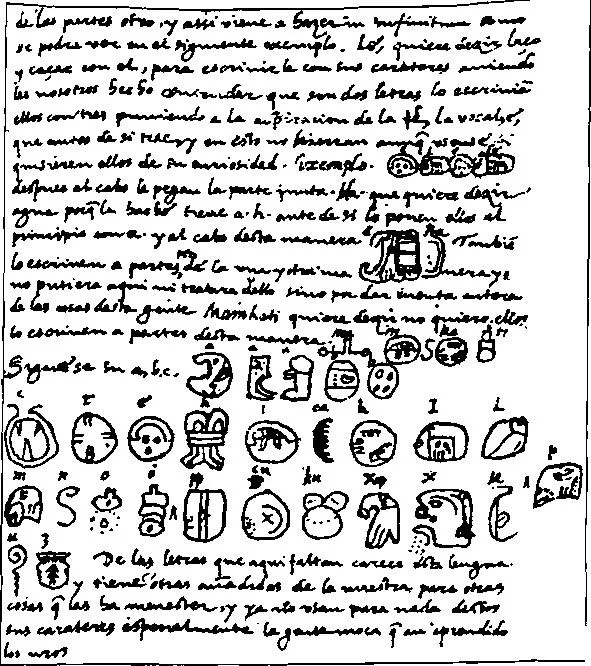 de las partes otro, y assi viene a hazer in infinitum como
se podra ver en el siguiente exemplo. Lé, quiere dezir laço
y caçar con el, para escrivirle con sus carateres aviendo
les nosotros hecho entender que son dos letras lo escrivian
ellos con tres puniendo a la aspiracion de la l, la vocal é,
que antes de si trae, y en esto no hierran aunq̃
quisieren ellos de su curiosidad. Exemplo.
despues al cabo le pegan la parte junta. Ha. que quiere dezir
agua porq̃ la haché tiene a. h. ante de si lo ponen ellos al
principio con a. y al cabo desta manera Ha Tambiē
lo escriven a partes de la una y otra ma nera yo
no pusiera aqui ni tratara dello sino por dar cuenta entera
de las cosas desta gente Mainkati quiere dezir no quiero, ellos
lo escriven a partes desta manera. ma i n ka ti
Siguese su a, b, c. a a a b b
c t e h i ca k l l
m n o o p cu ku x x u p
u z De las letras que aqui faltan carece esta lengua
y tiene otras añadidas de la nuestra para otras
cosas q̃ las ha menester, y ya no usan para nada destos
sus carateres especialmente la gente moça q̃ an aprendido
los nros